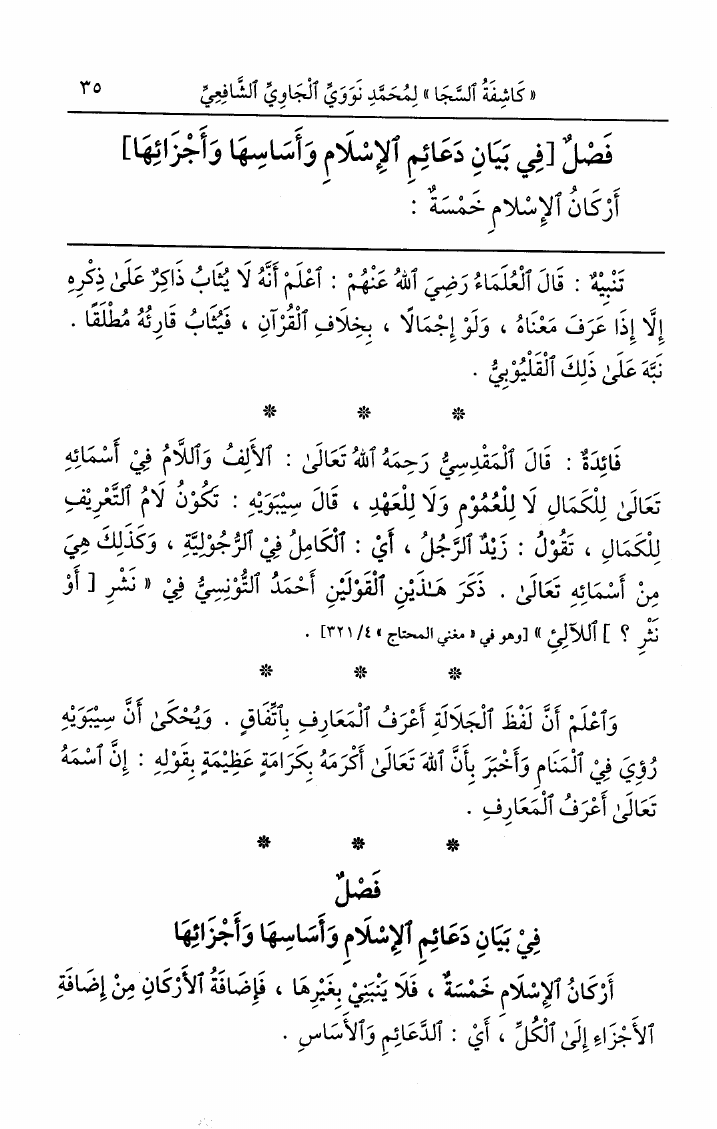 « كَاشِفَةُ ٱلسَّجَا » لِمُحَمَّدِ نَوَوِيِّ ٱلْجَاوِيِّ ٱلشَّافِعِيِّ ٣٥
فَصْلٌ [فِي بَيَانِ دَعَائِمِ ٱلإِسْلَامِ وَأَسَاسِهَا وَأَجْزَائِهَا]
أَرْكَانُ ٱلإِسْلَامِ خَمْسَةٌ :
تَنْبِيْهٌ : قَالَ ٱلْعُلَمَاءُ رَضِيَ ٱللهُ عَنْهُمْ : ٱعْلَمْ أَنَّهُ لَا يُثَابُ ذَاكِرٌ عَلَىٰ ذِكْرِهِ
إِلَّا إِذَا عَرَفَ مَعْنَاهُ ، وَلَوْ إِجْمَالًا ، بِخِلَافِ ٱلْقُرْآنِ ، فَيُثَابُ قَارِئُهُ مُطْلَقًا .
نَبَّهَ عَلَىٰ ذَلِكَ ٱلْقَلْيُوْبِيُّ .
* * *
فَائِدَةٌ : قَالَ ٱلْمَقْدِسِيُّ رَحِمَهُ ٱللهُ تَعَالَىٰ : ٱلأَلِفُ وَٱللَّامُ فِيْ أَسْمَائِهِ
تَعَالَىٰ لِلْكَمَالِ لَا لِلْعُمُوْمِ وَلَا لِلْعَهْدِ ، قَالَ سِيْبَوَيْهِ : تَكُوْنُ لَامُ ٱلتَّعْرِيْفِ
لِلْكَمَالِ ، تَقُوْلُ : زَيْدٌ ٱلرَّجُلُ ، أَيْ : ٱلْكَامِلُ فِيْ ٱلرُّجُوْلِيَّةِ ، وَكَذَلِكَ هِيَ
مِنْ أَسْمَائِهِ تَعَالَىٰ . ذَكَرَ هَـٰذَيْنِ ٱلْقَوْلَيْنِ أَحْمَدُ ٱلتُّوْنِسِيُّ فِيْ « نَشْرِ [ أَوْ
نَثْرِ ؟ ] ٱللآلِئِ » [وهو في « مغني المحتاج » ٤/ ٣٢١] .
* * *
وَٱعْلَمْ أَنَّ لَفْظَ ٱلْجَلَالَةِ أَعْرَفُ ٱلْمَعَارِفِ بِٱتِّفَاقٍ . وَيُحْكَىٰ أَنَّ سِيْبَوَيْهِ
رُؤِيَ فِيْ ٱلْمَنَامِ وَأَخْبَرَ بِأَنَّ ٱللهَ تَعَالَىٰ أَكْرَمَهُ بِكَرَامَةٍ عَظِيْمَةٍ بِقَوْلِهِ : إِنَّ ٱسْمَهُ
تَعَالَىٰ أَعْرَفُ ٱلْمَعَارِفِ .
* * *
فَصْلٌ
فِيْ بَيَانِ دَعَائِمِ ٱلإِسْلَامِ وَأَسَاسِهَا وَأَجْزَائِهَا
أَرْكَانُ ٱلإِسْلَامِ خَمْسَةٌ ، فَلَا يَنْبَنِيْ بِغَيْرِهَا ، فَإِضَافَةُ ٱلأَرْكَانِ مِنْ إِضَافَةِ
ٱلأَجْزَاءِ إِلَىٰ ٱلْكُلِّ ، أَيْ : ٱلدَّعَائِمِ وَٱلأَسَاسِ .